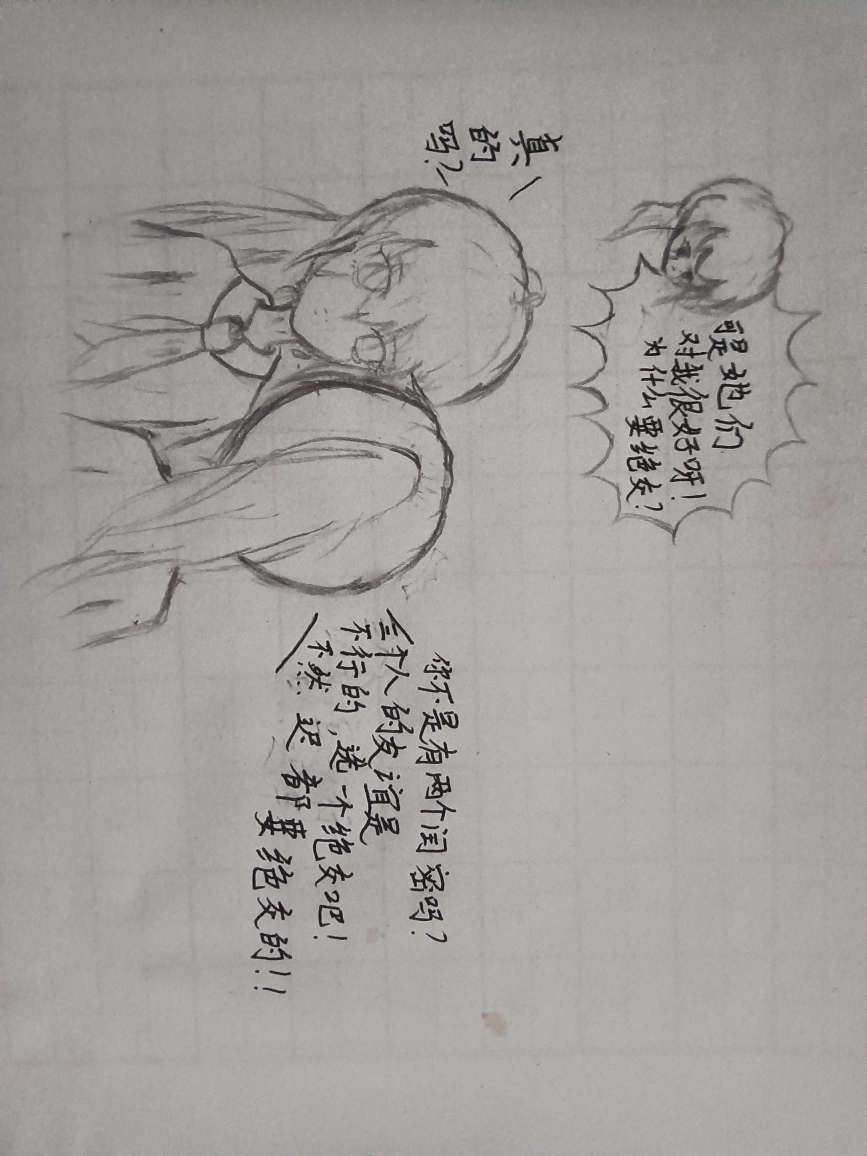 可是她们
对我很好呀！
为什么要绝交？
真
的
吗？
你不是有两个闰密吗？
三个人的友谊是
不行的，选一个绝交吧！
不然 迟都要绝交的！！